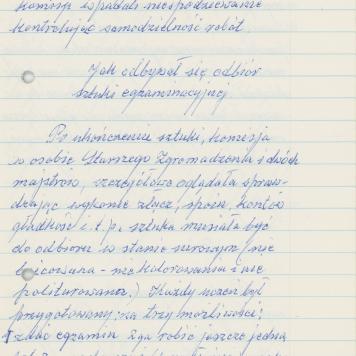 komisji wpadali niespodziewanie
kontrolując samodzielność robót.
Jak odbywał się odbiór
sztuki egzaminacyjnej
Po ukończeniu sztuki, komisja
w osobie Starszego Zgromadzenia i dwóch
majstrów, szczegółowo oglądała spraw-
dzając wykonanie złącz, spoin,
gładkość i.t.p., sztuka musiała być
do odbioru w stanie surowym, nie
bejcowana - nie kolorowana i nie
politurowana.) Każdy uczeń był
przygotowany na trzy możliwości:
zdać egzamin robić jeszcze jedną